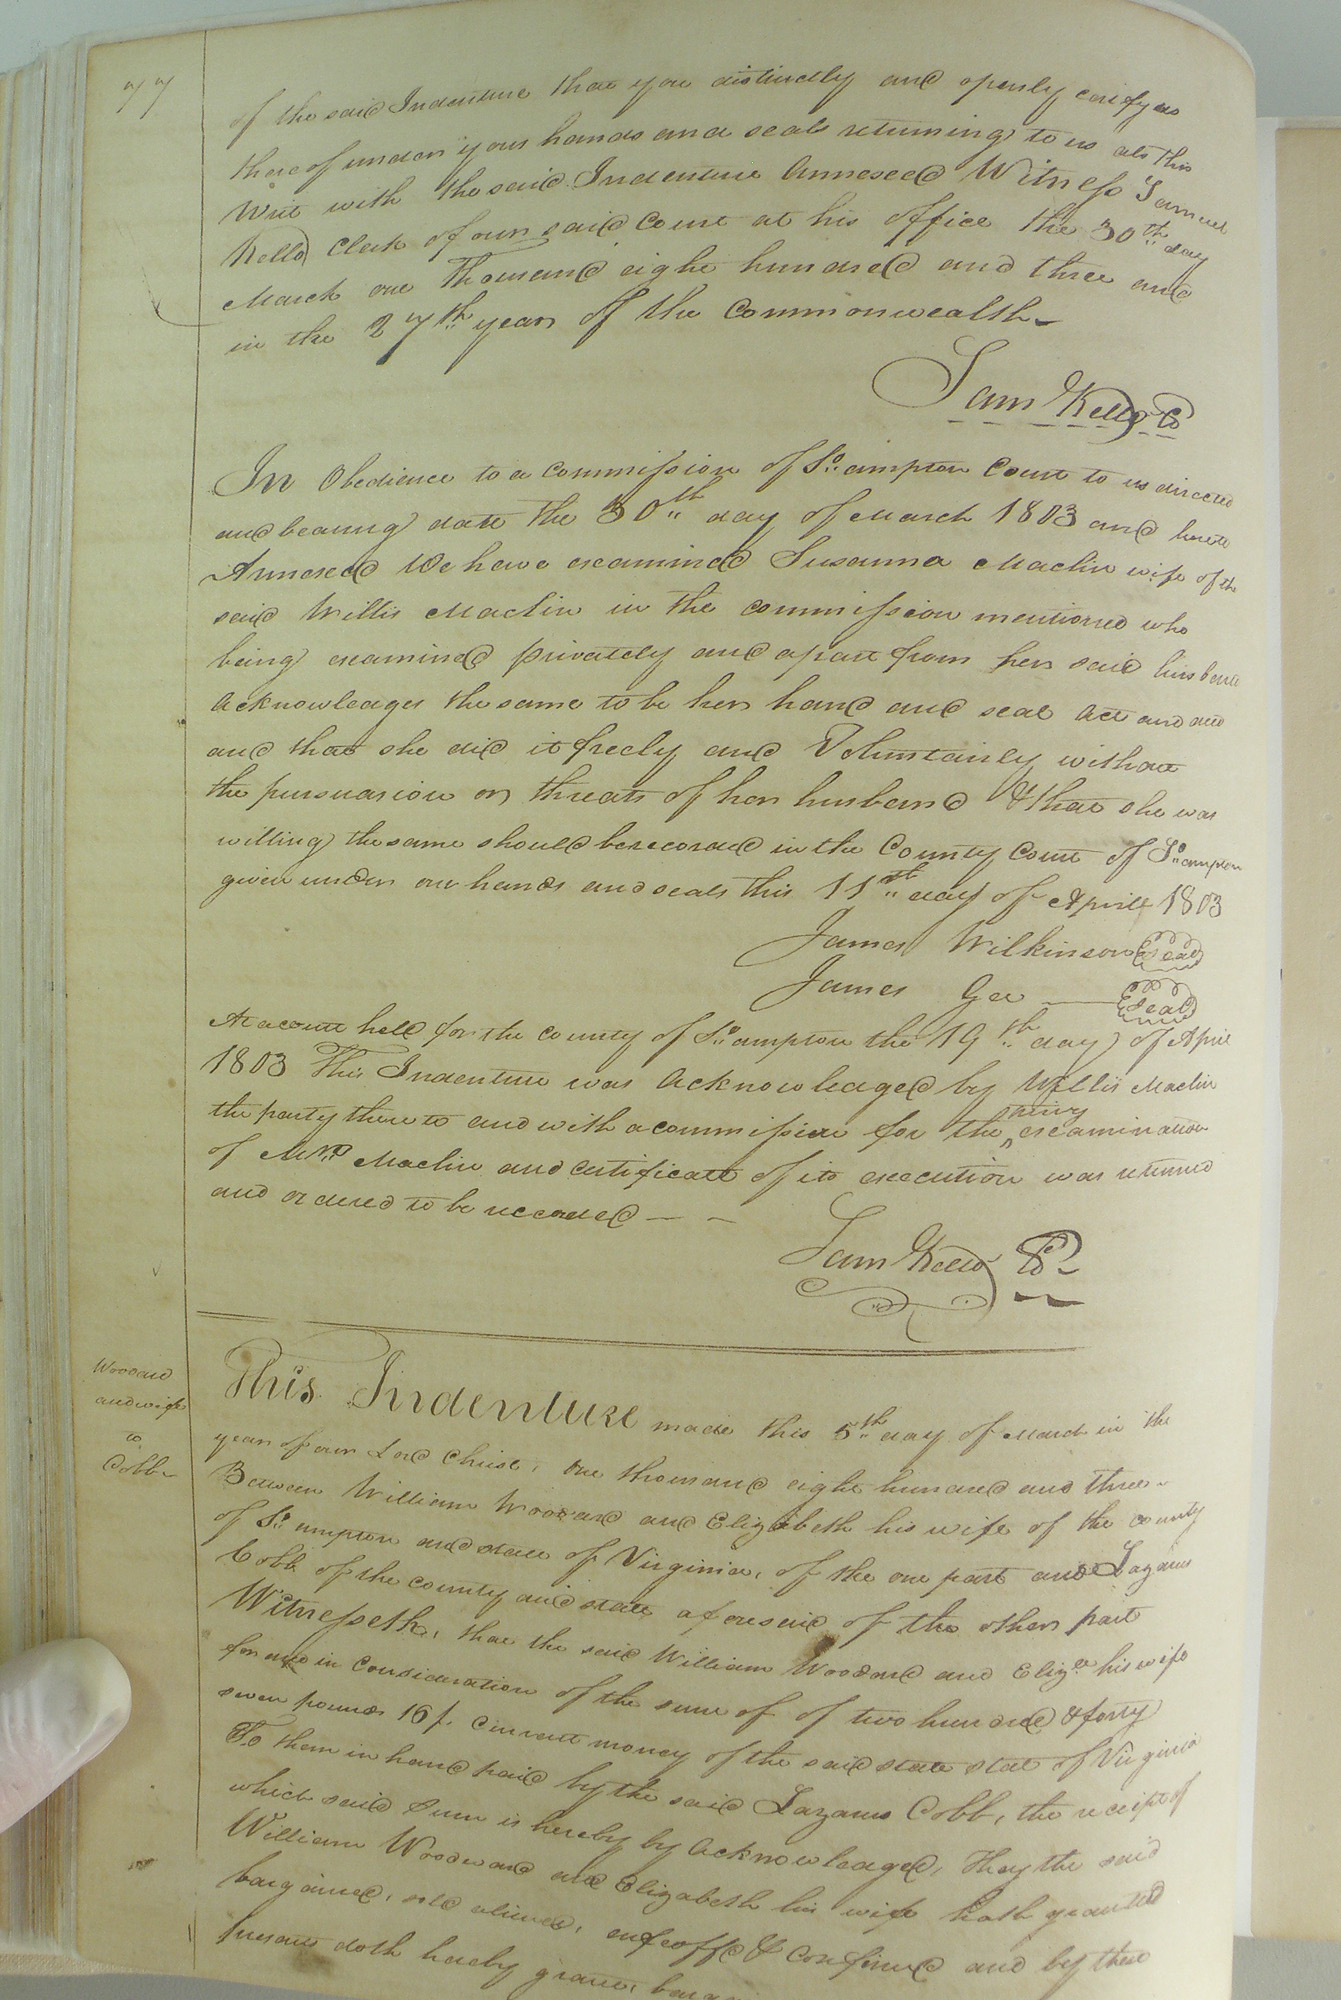 77
of the said Indenture that you distinctly and openly certify us
thereof under your hands and seals returning to us als this
Writ with the said Indenture Annexed Witness Samuel
Kello Clerk of our said Court at his office the 30th day
March one Thousand eight hundred and three and
in the 27th year of the Commonwealth
Sam Kello Co
In Obedience to a Commission of So ampton Court to us directed
and bearing date the 30th day of March 1803 and hereto
Annexed We have examined Susanna Maclin wife of the
said Willis Maclin in the commission mentioned who
being examined privately and apart from her said husband
Acknowledges the same to be her hand and seal Act and
and that she did it freely and Voluntarily without
the persuasion or threats of her husband & that she was
willing the same should be recorded in the County Court of So ampton
given under our hands and seals this 11th day of April 1803
James Wilkinson Seal
James Gee Seal
At a court held for the county of So ampton the 19th day of April
1803 This Indenture was Acknowledged by Willis Maclin
the party thereto and with a commission for the privy examination
of Mrs Maclin and Certificate of its execution was returned
and ordered to be recorded
Sam Kello Co
Woodard
and wife
to
Cobb
This Indenture made this 5th day of March in the
year of our Lord Christ, One thousand eight hundred and three
Between William Woodard and Elizabeth his wife of the county
of So ampton and state of Virginia, of the one part and Lazarus
Cobb of the county and state aforesaid of the other part
Witnesseth, that the said William Woodard and Eliza his wife
for and in Consideration of the sum of of two hundred & forty
seven pounds 16/. Current money of the said state state of Virginia
To them in hand paid by the said Lazarus Cobb, the receipt of
which said Sum is hereby by Acknowledged, they the said
William Woodward and Elizabeth his wife hath granted
bargained, sold aliened, enfeoffd & Confirmed and by these
presents doth hereby grant,